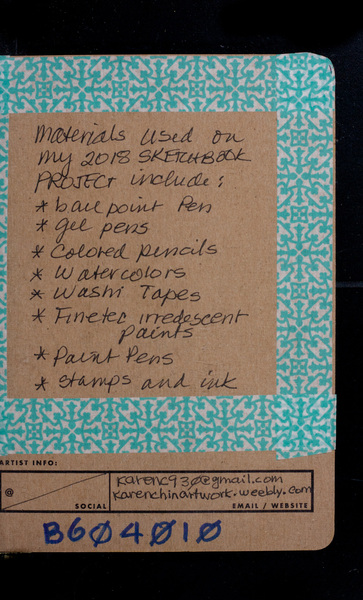 Materials used on
my 2018 SKETCHBOOK
PROJECT include:
* ball point Pen
* gel pens
* Colored pencils
* Watercolors
* Washi Tapes
* Finetec irredescent
paints
* Paint Pens
* Stamps and ink
ARTIST INFO:
@
SOCIAL
karenc930@gmail.com
karenchinartwork.weebly.com
EMAIL / WEBSITE
B604010